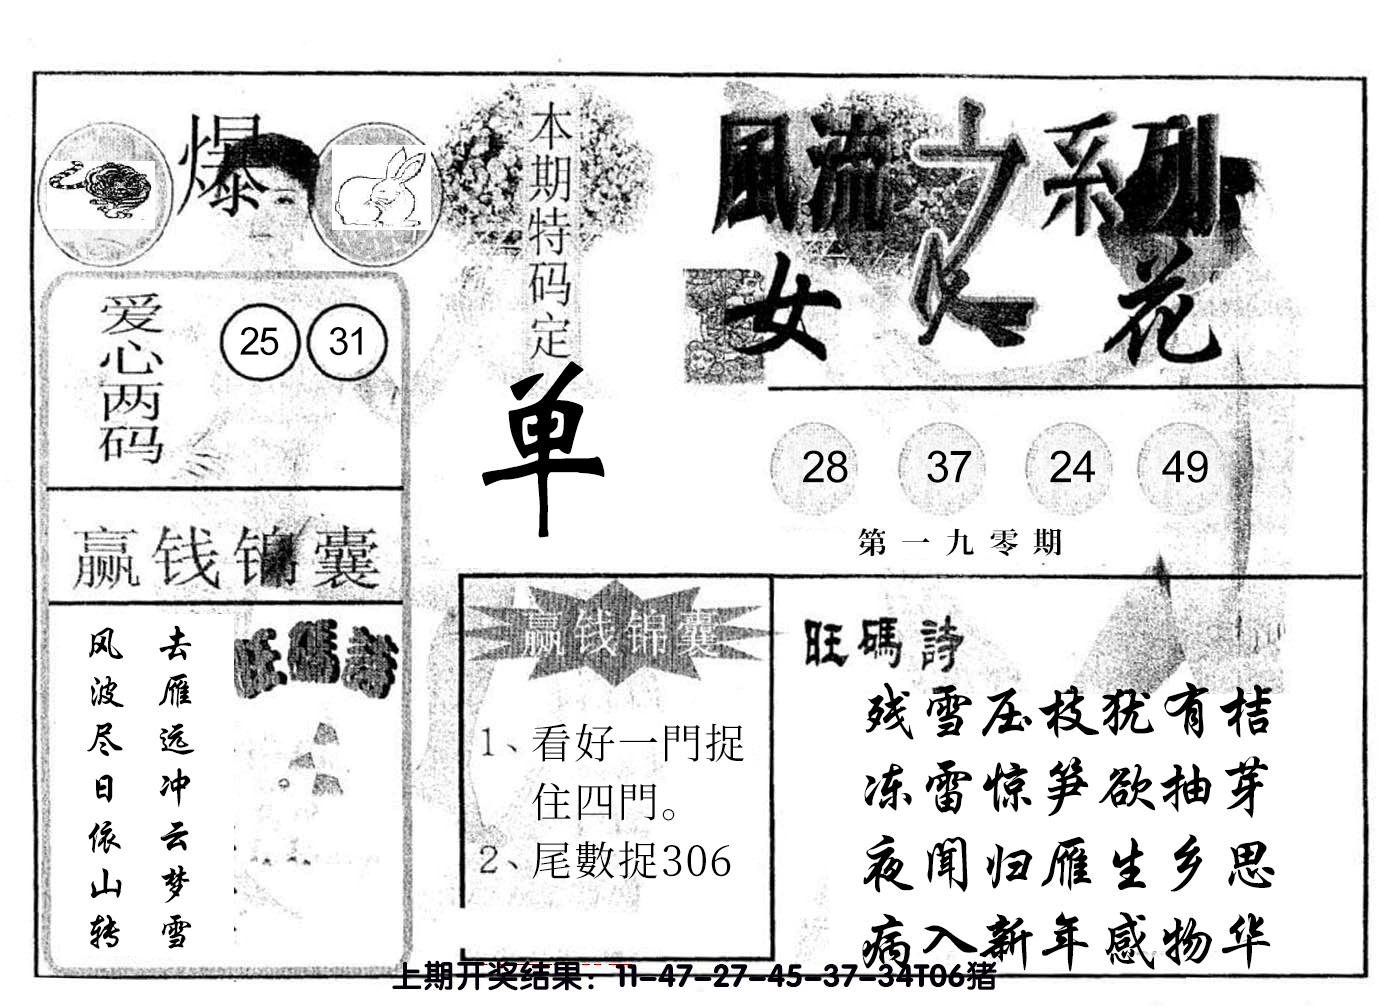 爆
本期特码定
单
風流之系列
女人花
爱心两码
25 31
28 37 24 49
第一九零期
赢钱锦囊
去雁远冲云梦雪
风波尽日依山转
旺碼詩
赢钱锦囊
1、看好一門捉
住四門。
2、尾數捉306
旺碼詩
残雪压枝犹有桔
冻雷惊笋欲抽芽
夜闻归雁生乡思
病入新年感物华
上期开奖结果：11-47-27-45-37-34T06猪